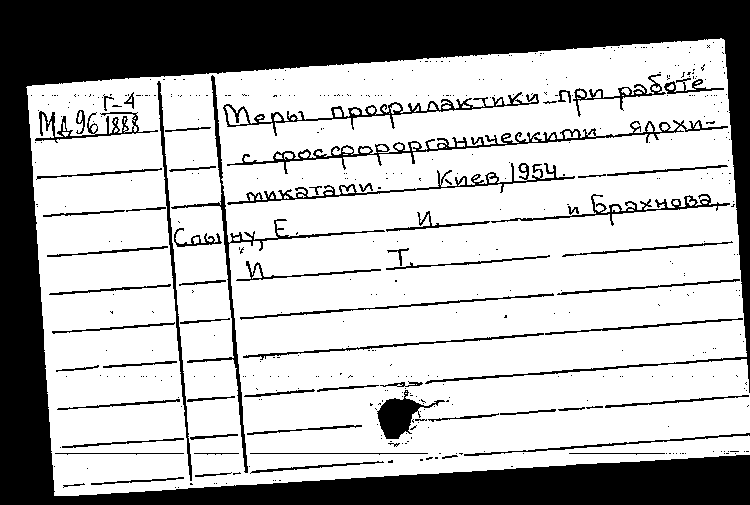 МД96 Г-4
1888
Меры профилактики при работе
с фосфорорганическими ядохи-
микатами. Киев, 1954.
Спыну, Е. И. и Брахнова,
И. Т.